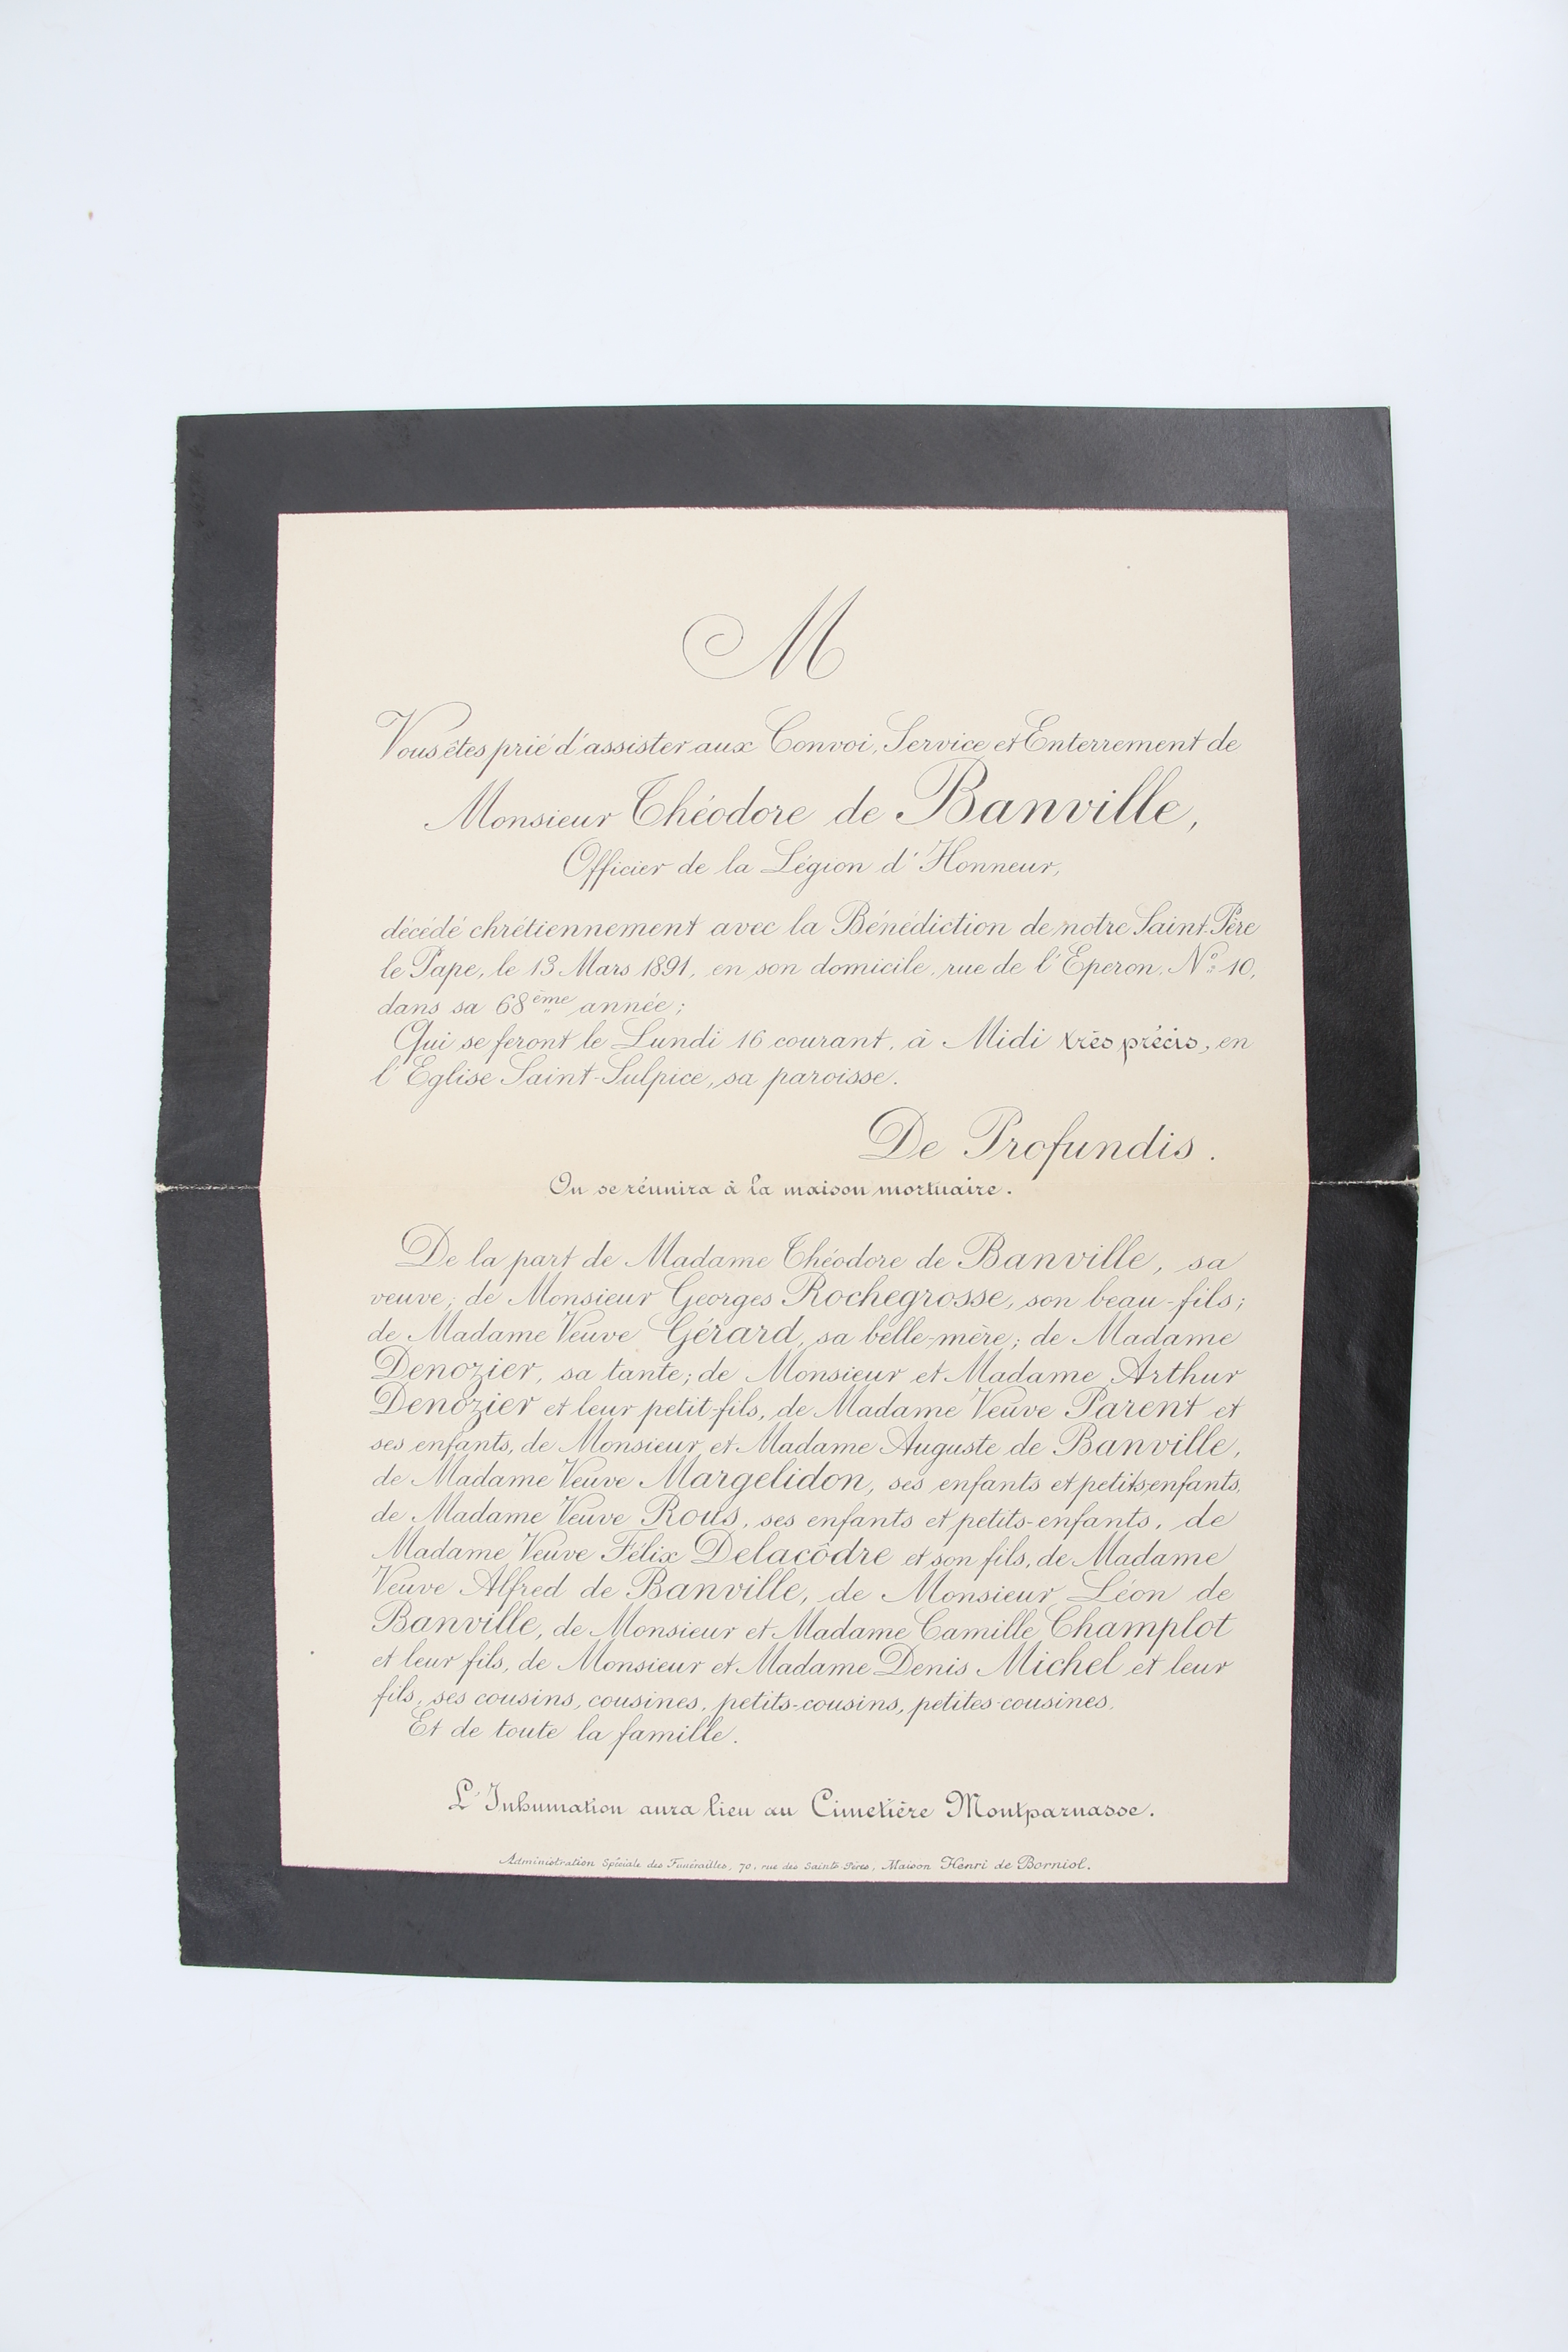 M
Vous êtes prié d'assister aux Convoi, Service et Enterrement de
Monsieur Théodore de Banville,
Officier de la Légion d'Honneur,
décédé chrétiennement avec la Bénédiction de notre Saint-Père
le Pape, le 13 Mars 1891, en son domicile, rue de l'Eperon, No 10,
dans sa 68ème année;
Qui se feront le Lundi 16 courant, à Midi très précis, en
l'Eglise Saint-Sulpice, sa paroisse.
De Profundis.
On se réunira à la maison mortuaire.
De la part de Madame Théodore de Banville, sa
veuve; de Monsieur Georges Rochegrosse, son beau-fils;
de Madame Veuve Gérard, sa belle-mère; de Madame
Denozier, sa tante; de Monsieur et Madame Arthur
Denozier et leur petit-fils, de Madame Veuve Parent et
ses enfants, de Monsieur et Madame Auguste de Banville,
de Madame Veuve Margelidon, ses enfants et petits-enfants,
de Madame Veuve Rous, ses enfants et petits-enfants, de
Madame Veuve Félix Delacôdre et son fils, de Madame
Veuve Alfred de Banville, de Monsieur Léon de
Banville, de Monsieur et Madame Camille Champlot
et leur fils, de Monsieur et Madame Denis Michel et leur
fils, ses cousins, cousines, petits-cousins, petites-cousines.
Et de toute la famille.
L'Inhumation aura lieu au Cimetière Montparnasse.
Administration Spéciale des Funérailles, 70, rue des Saints Pères, Maison Henri de Borniol.